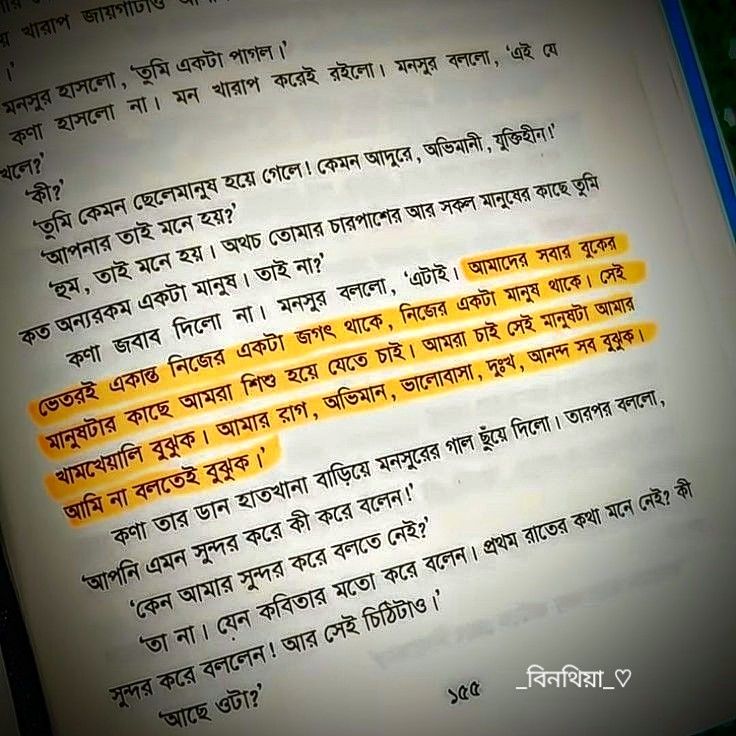 খারাপ জায়গাটাও
মনসুর হাসলো, 'তুমি একটা পাগল।'
কণা হাসলো না। মন খারাপ করেই রইলো। মনসুর বললো, 'এই যে
'কী?'
'তুমি কেমন ছেলেমানুষ হয়ে গেলে। কেমন আদুরে, অভিমানী, যুক্তিহীন!'
'আপনার তাই মনে হয়?'
'হুম, তাই মনে হয়। অথচ তোমার চারপাশের আর সকল মানুষের কাছে তুমি
কত অন্যরকম একটা মানুষ। তাই না?'
কণা জবাব দিলো না। মনসুর বললো, 'এটাই। আমাদের সবার বুকের
ভেতরই একান্ত নিজের একটা জগৎ থাকে, নিজের একটা মানুষ থাকে। সেই
মানুষটার কাছে আমরা শিশু হয়ে যেতে চাই। আমরা চাই সেই মানুষটা আমার
খামখেয়ালি বুঝুক। আমার রাগ, অভিমান, ভালোবাসা, দুঃখ, আনন্দ সব বুঝুক।
আমি না বলতেই বুঝুক।'
কণা তার ডান হাতখানা বাড়িয়ে মনসুরের গাল ছুঁয়ে দিলো। তারপর বললো,
'আপনি এমন সুন্দর করে কী করে বলেন!'
'কেন আমার সুন্দর করে বলতে নেই?'
'তা না। যেন কবিতার মতো করে বলেন। প্রথম রাতের কথা মনে নেই? কী
সুন্দর করে বললেন! আর সেই চিঠিটাও।'
'আছে ওটা?'
১৫৫
_বিনথিয়া_♡